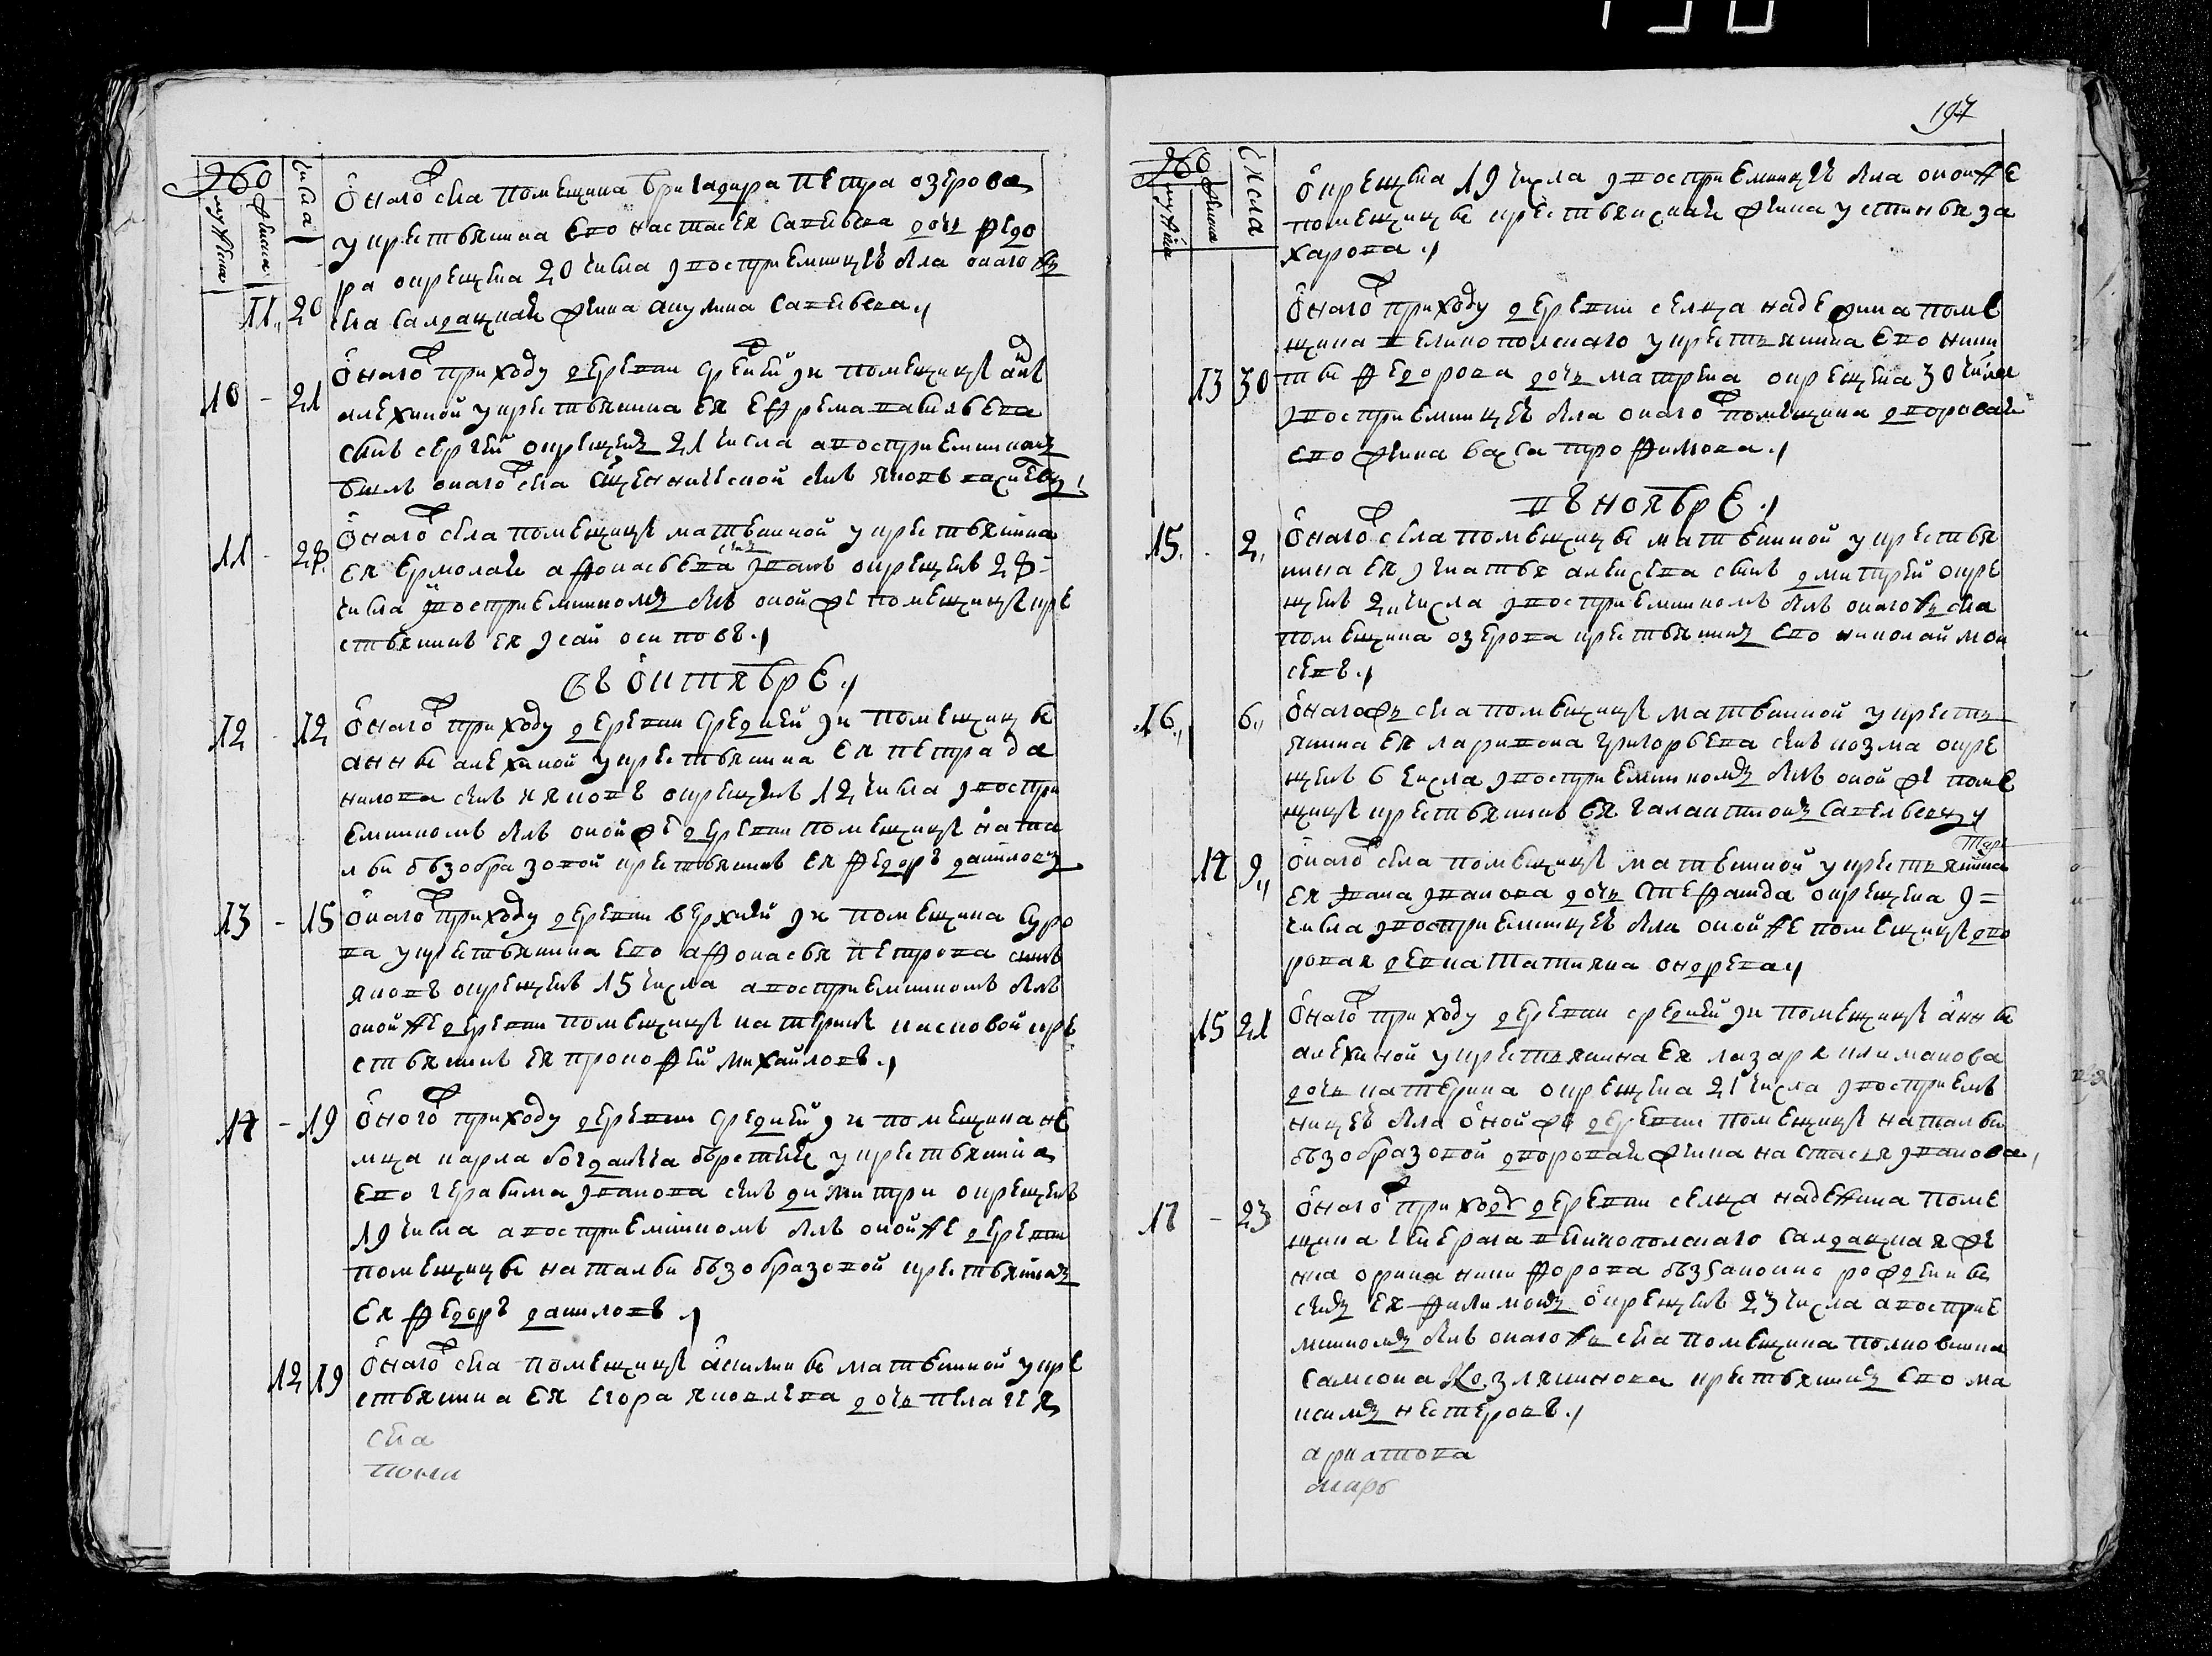 число
мужска
женска
11 20
Оного села помещика бригадира Петра Озерова
у крестьянина ево Настасея Савельева дочь Федо
ра окрещена 20 числа и восприемницею была оного ж
села салдацкая жена Акулина Савельева
10 - 21
Оного приходу деревни Средней помещицы Анны
Алехиной у крестьянина ея Ефрема Васильева
сынъ Сергей окрещенъ 21 числа а восприемникомъ
былъ оного села священнической сынъ Яковъ
11 - 28
Оного села помещицы Матвеиной у крестьянина
ея Ермолая Афонасьева сынъ Иванъ окрещенъ 28
числа и восприемникомъ былъ оной же помещицы кре
стьянинъ ея Исай Осиповъ
Въ октябре
12 - 12
Оного приходу деревни Средней помещицы
Анны Алехиной у крестьянина ея Петра Да
нилова сынъ Яковъ окрещенъ 12 числа и воспри
емникомъ былъ оной же деревни помещицы Ната
льи Обезобразовой крестьянинъ ея Федоръ Даниловъ
13 - 15
Оного приходу деревни Верхней помещика Суро
ва у крестьянина ево Афонасья Петрова сынъ
Яковъ окрещенъ 15 числа а восприемникомъ былъ
оной же деревни помещицы Катерины кре
стьянинъ ея Прокофей Михайловъ
14 - 19
Оного приходу деревни Средней помещика не
мца Карла у крестьянина
ево Герасима Иванова сынъ Димитри окрещенъ
19 числа а восприемникомъ былъ оной же деревни
помещицы Натальи Обезобразовой крестьянинъ
ея Федоръ Даниловъ
12 19
Оного села помещицы Акилины Матвеиной у кре
стьянина ея Егора Яковлева дочь Пелагея
села
поми
197
число
мужска
женска
окрещена 19 числа и восприемницею была оной же
помещицы крестьянская жена Устинья За
харова
13 30
Оного приходу деревни сельца Надежина поме
щика Великопольского у крестьянина ево Ники
ты Федорова дочь Матрена окрещена 30 числа
и восприемницею была оного помещика дворовая
ево жена Васса Трофимова
В ноябре
15 - 2
Оного села помещицы Матвеиной у крестья
нина ея Игнатья Алексева сынъ Дмитрей окре
щенъ 2 числа и восприемникомъ былъ оного ж села
помещика Озерова крестьянинъ ево Николай Мои
севъ
16 6
Оного ж села помещицы Матвеиной у кресть
янина ея Лариона Григорьева сынъ Козма окре
щенъ 6 числа и восприемникомъ былъ оной же поме
щицы крестьянинъ ея Галактионъ Савельевъ
14 9
Оного села помещицы Матвеиной у крестьянина
ея Ивана Иванова дочь Стефанида окрещена 9
числа и восприемницею была оной же помещицы дво
ровая девка Татияна Ондрева
15 21
Оного приходу деревни Средней помещицы Анны
Алехиной у крестьянина ея Лазаря Климанова
дочь Катерина окрещена 21 числа и восприем
ницею была оной же деревни помещицы Натальи
Обезобразовой дворовая жена Настасья Иванова
17 - 23
Оного приходу деревни сельца Надежина поме
щика Великопольского салдацкая же
нка Никифорова беззаконно рождены
сынъ ея Филимонъ окрещенъ 23 числа а восприе
мникомъ былъ оного ж села помещика полковника
Самсона крестьянинъ ево Ма
ксимъ Нестеровъ